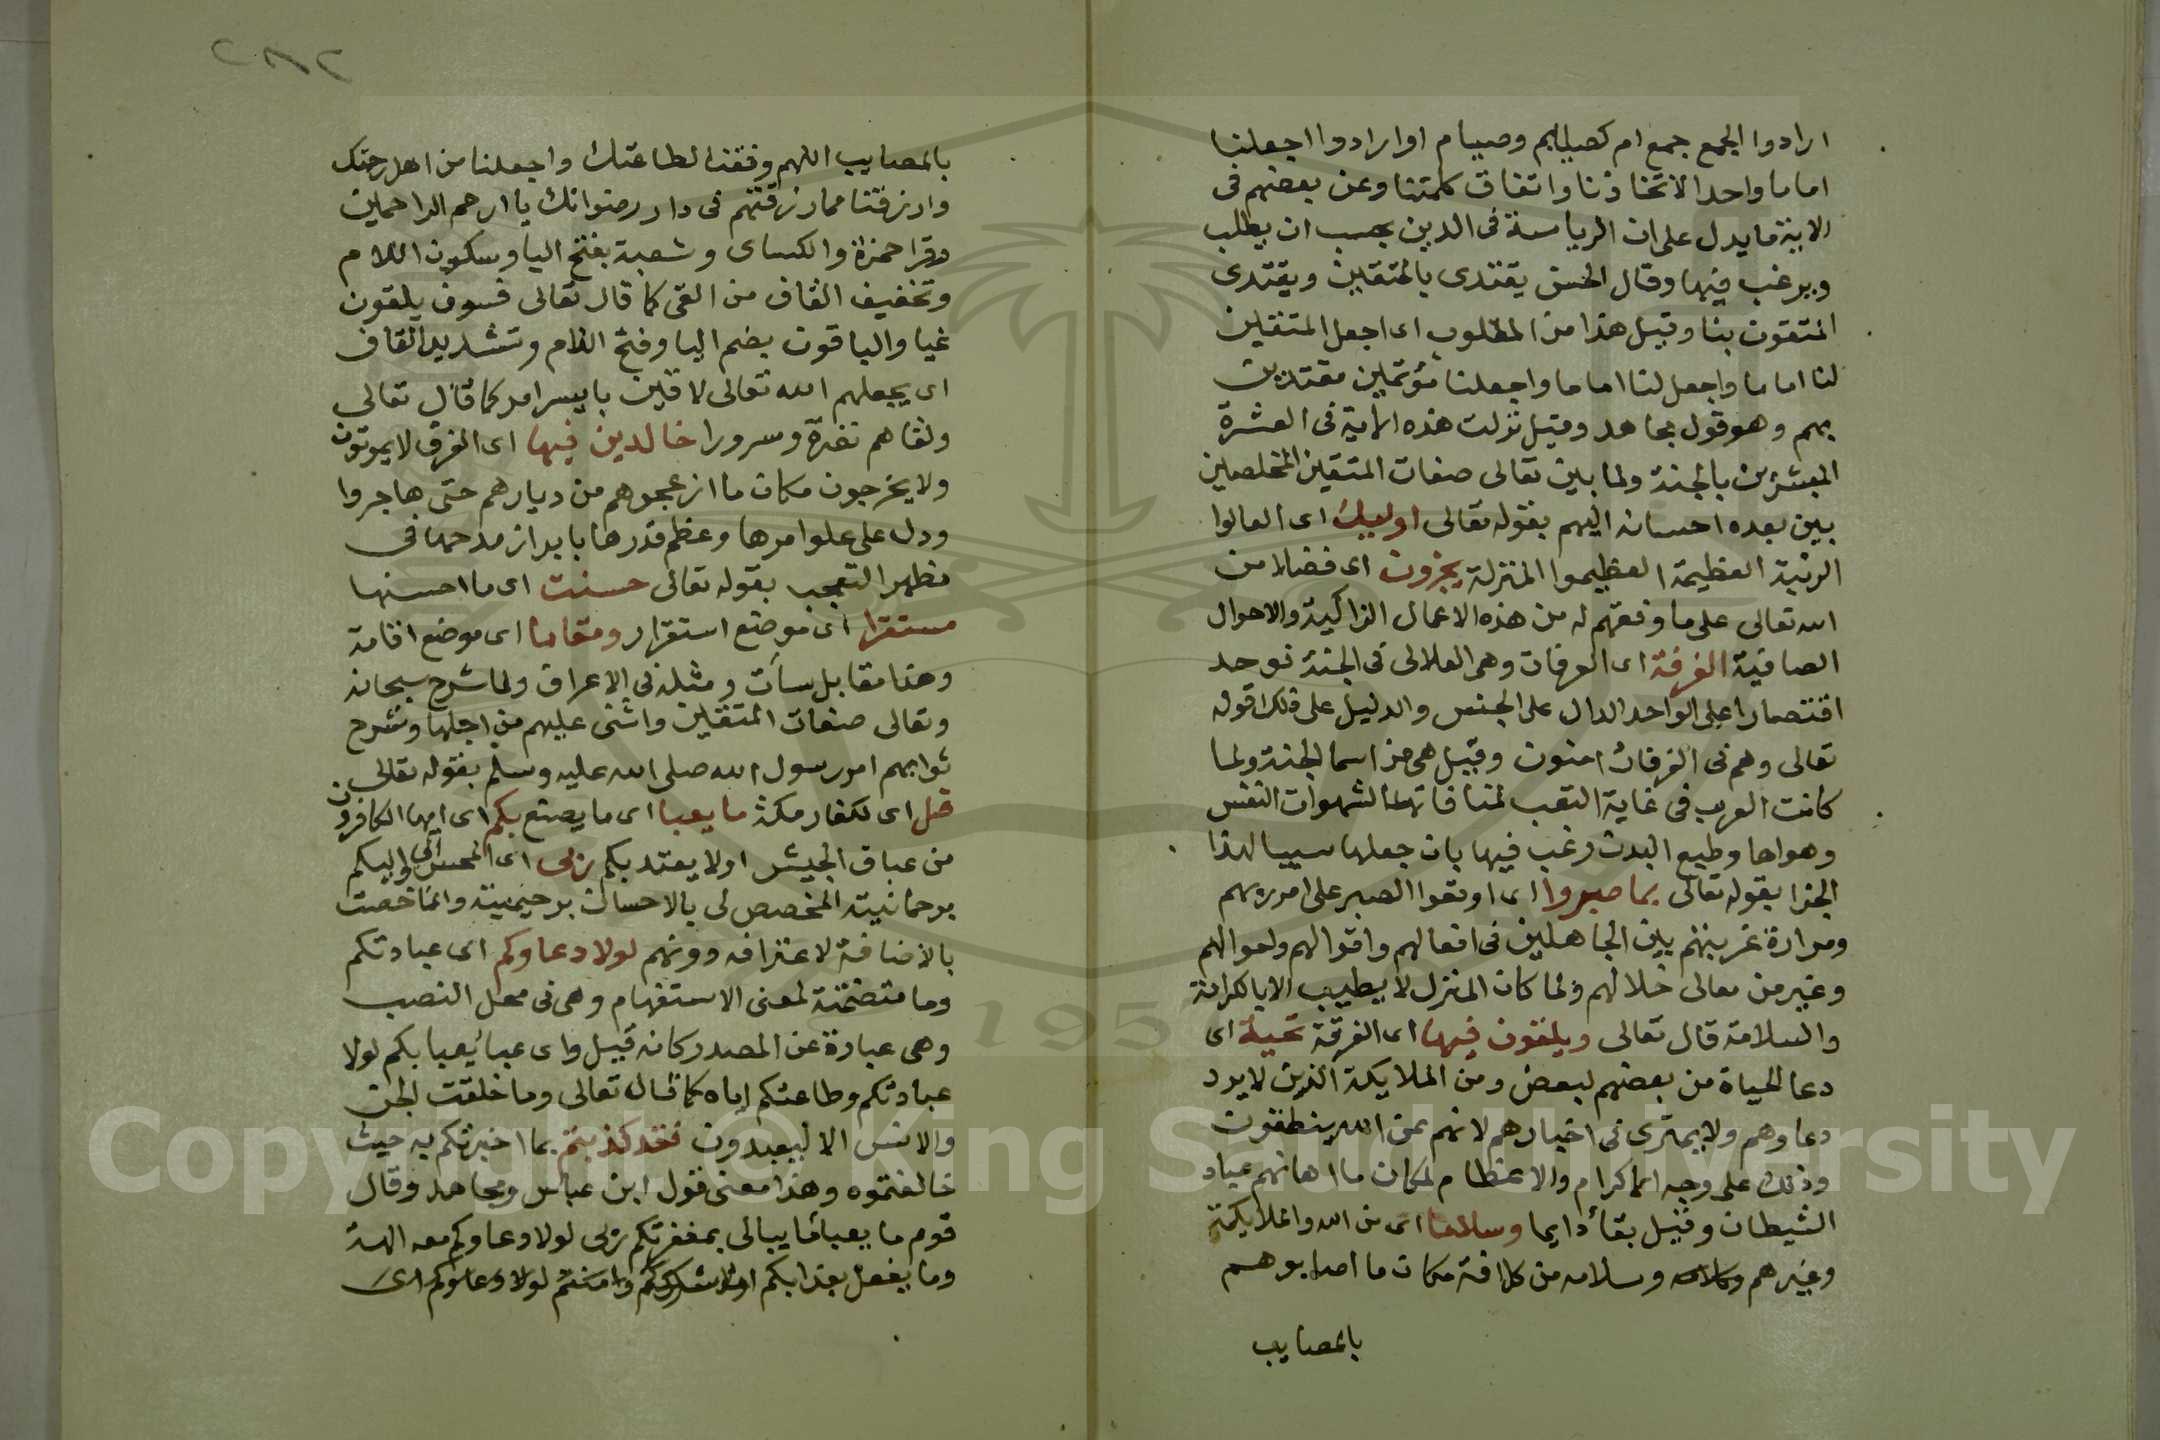 ارادوا الجمع جمع ام كصايم وصيام او ارادوا اجعلنا
اماما واحدا لاتخاذنا واتفاق كلمتنا وعن بعضهم في
الاية ما يدل على ان الرياسة في الدين يجب ان يطلب
ويرغب فيها وقال الحسن يقتدى بالمتقين ويقتدى
المتقون بنا وقيل هذا من المقلوب اى اجعل المتقين
لنا اماما واجعل لنا اماما واجعلنا مؤتمين مقتدين
بهم وهو قول مجاهد وقيل نزلت هذه الاية في العشرة
المبشرين بالجنة ولما بين تعالى صفات المتقين المخلصين
بين بعده احسانه اليهم بقوله تعالى اوليك اى العالوا
الرتبة العظيمة العظيموا المنزلة يجزون اى فضلا من
الله تعالى على ما وفقهم له من هذه الاعمال الزاكية والاحوال
الصافية الغرفة اى الغرفات وهى العلالى في الجنة فوحد
اقتصارا على الواحد الدال على الجنس والدليل على ذلك قوله
تعالى وهم في الغرفات امنون وقيل هى من اسما الجنة ولما
كانت الغرب في غاية التعب لمنافاتها لشهوات النفس
وهواها وطبع البدن رغب فيها بان جعلها سببا لهذا
الجزا بقوله تعالى بما صبروا اى اوقعوا الصبر على امور بهم
ومرارة غربتهم بين الجاهلين في افعالهم واقوالهم واحوالهم
وغير من معالى خلالهم ولما كان المنزل لا يطيب الا بالكرامة
والسلامة قال تعالى ويلقون فيها اى الغرفة تحية اى
دعا للحياة من بعضهم لبعض ومن الملايكة الذين لا يرد
دعاوهم ولا يمترى في اخبارهم لانهم عن الله ينطقون
وذلك على وجه الاكرام والاعظام لمكان ما اهانهم عباد
الشيطان وقيل بقاء دايما وسلاما اى من الله والملايكة
وغيرهم وسلامه من كل افة مكان ما اصابوهم
بالمصايب
٢٨٢
بالمصايب اللهم وفقنا لطاعتك واجعلنا من اهل رحمتك
وارزقنا مما رزقتهم في دار رضوانك يا ارحم الراحمين
وقرا حمزة والكساى وشعبة بفتح اليا وسكون اللام
وتخفيف القاف من لقى كما قال تعالى فسوف يلقون
غيا والباقون بضم اليا وفتح اللام وتشديد القاف
اى يجعلهم الله تعالى لاقين بايسر امر كما قال تعالى
ولقاهم نضرة وسرورا خالدين فيها اى الغرف لا يموتون
ولا يخرجون مكان ما ازعجوهم من ديارهم حتى هاجروا
ودل على علو امرها وعظم قدرها بابراز مدحها في
مظهر التعجب بقوله تعالى حسنت اى ما احسنها
مستقرا اى موضع استقرار ومقاما اى موضع اقامة
وهذا مقابل سات ومثله في الاعراق ولما شرح سبحانه
وتعالى صفات المتقين واثنى عليهم من اجلها وشرح
ثوابهم امر رسول الله صلى الله عليه وسلم بقوله تعالى
قل اى لكفار مكة ما يعبا اى ما يصنع بكم اى ايها الكافرون
من عباق الجيش او لا يعتد بكم ربى اى المحسن الى واليكم
برحمانيته المخصص لى بالاحسان برحيميته وانما خصت
بالاضافة لاعترافه دونهم لولا دعاوكم اى عبادتكم
وما متضمنة لمعنى الاستفهام وهى في محل النصب
وهى عبارة عن المصدر كانه قيل واى عبا يعبا بكم لولا
عبادتكم وطاعتكم اياه كما قال تعالى وما خلقت الجن
والانس الا ليعبدون فقد كذبتم بما اخبرتكم به حيث
خالفتموه وهذا معنى قول ابن عباس ومجاهد وقال
قوم ما يعبا ما يبالى بمغفرتكم ربى لولا دعاوكم معه الهة
وما يفعل بعذابكم لولا شرككم وامنتم لولا دعاوكم اى
1957
Copyright © King Saud University